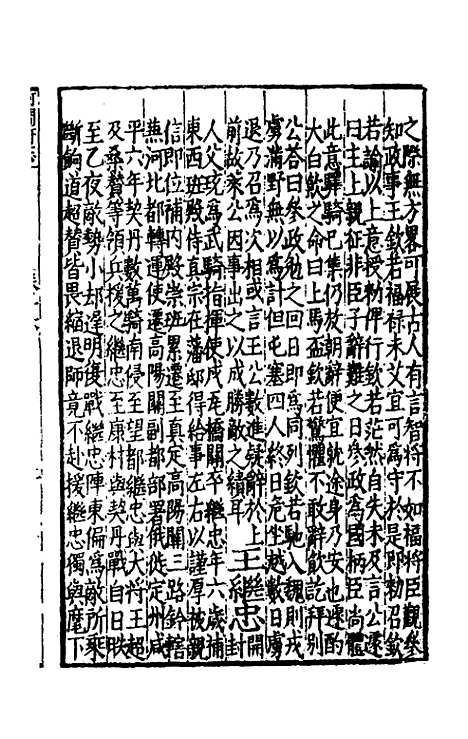 之際無方畧可展古人有言智將不如福將臣觀參
知政事王欽若福祿未艾宜可為守於是即勅召欽
若諭以上意授勅俾行欽若茫然自失未及言公遽
曰主上親征非臣子辭難之日參政為國柄臣尚體
此意驛騎已集仍放朝辭便宜就途身乃安也遽酌
大白飲之命曰上馬盃欽若驚懼不敢辭飲訖拜別
公荅曰參政勉之回日即為同列欽若馳入魏則戎
虜滿野無以為計但屯塞四人終日危坐越數日虜
退乃召為次相或言王公數進疑辭於上
前故萊公因事出之以成勝敵之績耳　王繼忠開封
人父珫為武騎指揮使戍瓦橋關卒繼忠年六歲補
東西班殿侍真宗在藩邸得給事左右以謹厚被親
信即位補內殿崇班累遷至真定高陽關三路鈐轄
燕河北都轉運使遷高陽關副都部署俄徙定州咸
平六年契丹數萬騎南侵至望都繼忠與大將王超
及桑贊等領兵援之繼忠至康村與契丹戰自日昳
至乙夜敵勢小却遲明復戰繼忠陣東偏為敵所乘
斷餉道超贊皆畏縮退師竟不赴援繼忠獨與麾下